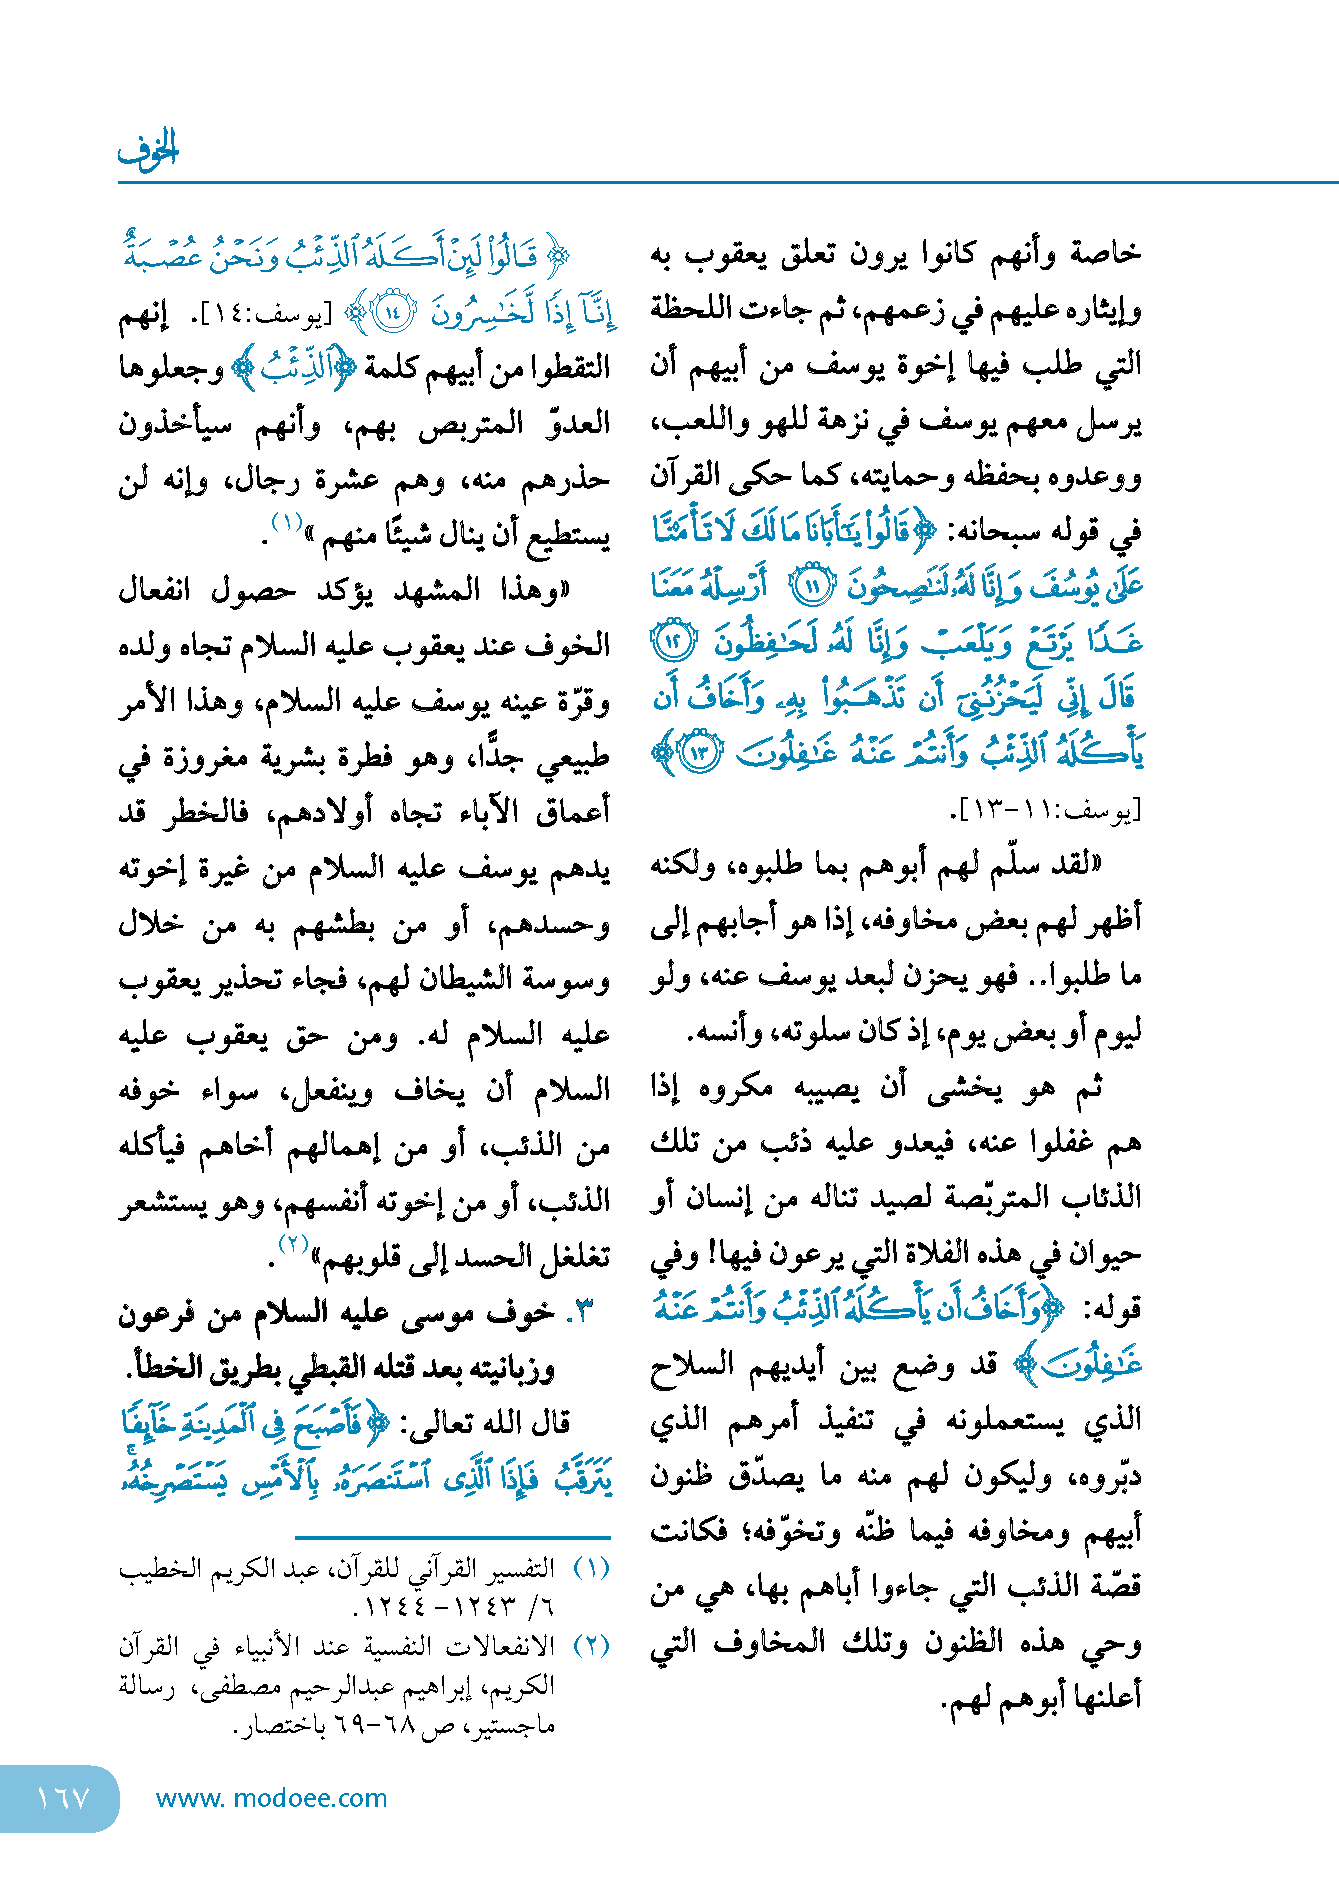 الخوف
خاصة وأنهم كانوا يرون تعلق يعقوب به
وإيثاره عليهم في زعمهم، ثم جاءت اللحظة
التي طلب فيها إخوة يوسف من أبيهم أن
يرسل معهم يوسف في نزهة للهو واللعب،
ووعدوه بحفظه وحمايته، كما حكى القرآن
في قوله سبحانه: ﴿قَالُوا۟ يَـٰٓأَبَانَا مَا لَكَ لَا تَأْمَ۫نَّا
عَلَىٰ يُوسُفَ وَإِنَّا لَهُۥ لَنَـٰصِحُونَ ۝١١ أَرْسِلْهُ مَعَنَا
غَدًا يَرْتَعْ وَيَلْعَبْ وَإِنَّا لَهُۥ لَحَـٰفِظُونَ ۝١٢
قَالَ إِنِّى لَيَحْزُنُنِىٓ أَن تَذْهَبُوا۟ بِهِۦ وَأَخَافُ أَن
يَأْكُلَهُ ٱلذِّئْبُ وَأَنتُمْ عَنْهُ غَـٰفِلُونَ ۝١٣﴾
[يوسف:١١-١٣].
«لقد سلّم لهم أبوهم بما طلبوه، ولكنه
أظهر لهم بعض مخاوفه، إذا هو أجابهم إلى
ما طلبوا.. فهو يحزن لبعد يوسف عنه، ولو
ليوم أو بعض يوم، إذ كان سلوته، وأنسه.
ثم هو يخشى أن يصيبه مكروه إذا
هم غفلوا عنه، فيعدو عليه ذئب من تلك
الذئاب المتربّصة لصيد تناله من إنسان أو
حيوان في هذه الفلاة التي يرعون فيها! وفي
قوله: ﴿وَأَخَافُ أَن يَأْكُلَهُ ٱلذِّئْبُ وَأَنتُمْ عَنْهُ
غَـٰفِلُونَ﴾ قد وضع بين أيديهم السلاح
الذي يستعملونه في تنفيذ أمرهم الذي
دبّروه، وليكون لهم منه ما يصدّق ظنون
أبيهم ومخاوفه فيما ظنّه وتخوّفه؛ فكانت
قصّة الذئب التي جاءوا أباهم بها، هي من
وحي هذه الظنون وتلك المخاوف التي
أعلنها أبوهم لهم.
﴿قَالُوا۟ لَئِنْ أَكَلَهُ ٱلذِّئْبُ وَنَحْنُ عُصْبَةٌ
إِنَّآ إِذًا لَّخَـٰسِرُونَ ۝١٤﴾ [يوسف:١٤]. إنهم
التقطوا من أبيهم كلمة ﴿ٱلذِّئْبُ﴾ وجعلوها
العدوّ المتربص بهم، وأنهم سيأخذون
حذرهم منه، وهم عشرة رجال، وإنه لن
يستطيع أن ينال شيئًا منهم»(١).
«وهذا المشهد يؤكد حصول انفعال
الخوف عند يعقوب عليه السلام تجاه ولده
وقرّة عينه يوسف عليه السلام، وهذا الأمر
طبيعي جدًّا، وهو فطرة بشرية مغروزة في
أعماق الآباء تجاه أولادهم، فالخطر قد
يدهم يوسف عليه السلام من غيرة إخوته
وحسدهم، أو من بطشهم به من خلال
وسوسة الشيطان لهم، فجاء تحذير يعقوب
عليه السلام له. ومن حق يعقوب عليه
السلام أن يخاف وينفعل، سواء خوفه
من الذئب، أو من إهمالهم أخاهم فيأكله
الذئب، أو من إخوته أنفسهم، وهو يستشعر
تغلغل الحسد إلى قلوبهم»(٢).
٣. خوف موسى عليه السلام من فرعون
وزبانيته بعد قتله القبطي بطريق الخطأ.
قال الله تعالى: ﴿فَأَصْبَحَ فِى ٱلْمَدِينَةِ خَآئِفًا
يَتَرَقَّبُ فَإِذَا ٱلَّذِى ٱسْتَنصَرَهُۥ بِٱلْأَمْسِ يَسْتَصْرِخُهُۥ ۚ
(١) التفسير القرآني للقرآن، عبد الكريم الخطيب
٦/ ١٢٤٣- ١٢٤٤.
(٢) الانفعالات النفسية عند الأنبياء في القرآن
الكريم، إبراهيم عبدالرحيم مصطفى، رسالة
ماجستير، ص ٦٨-٦٩ باختصار.
www. modoee.com
١٦٧